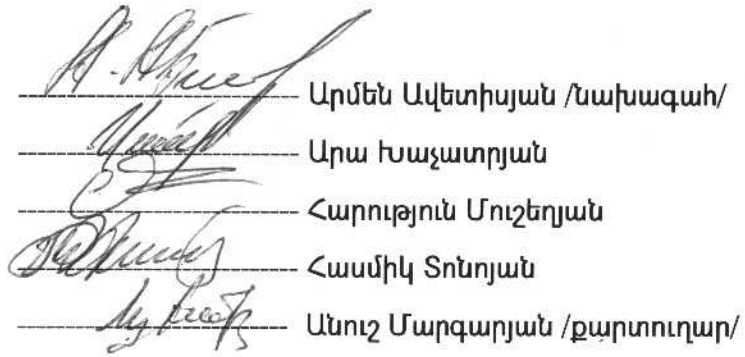 Արմեն Ավետիսյան /նախագահ/
Արա Խաչատրյան
Հարություն Մուշեղյան
Հասմիկ Տոնոյան
Անուշ Մարգարյան /քարտուղար/